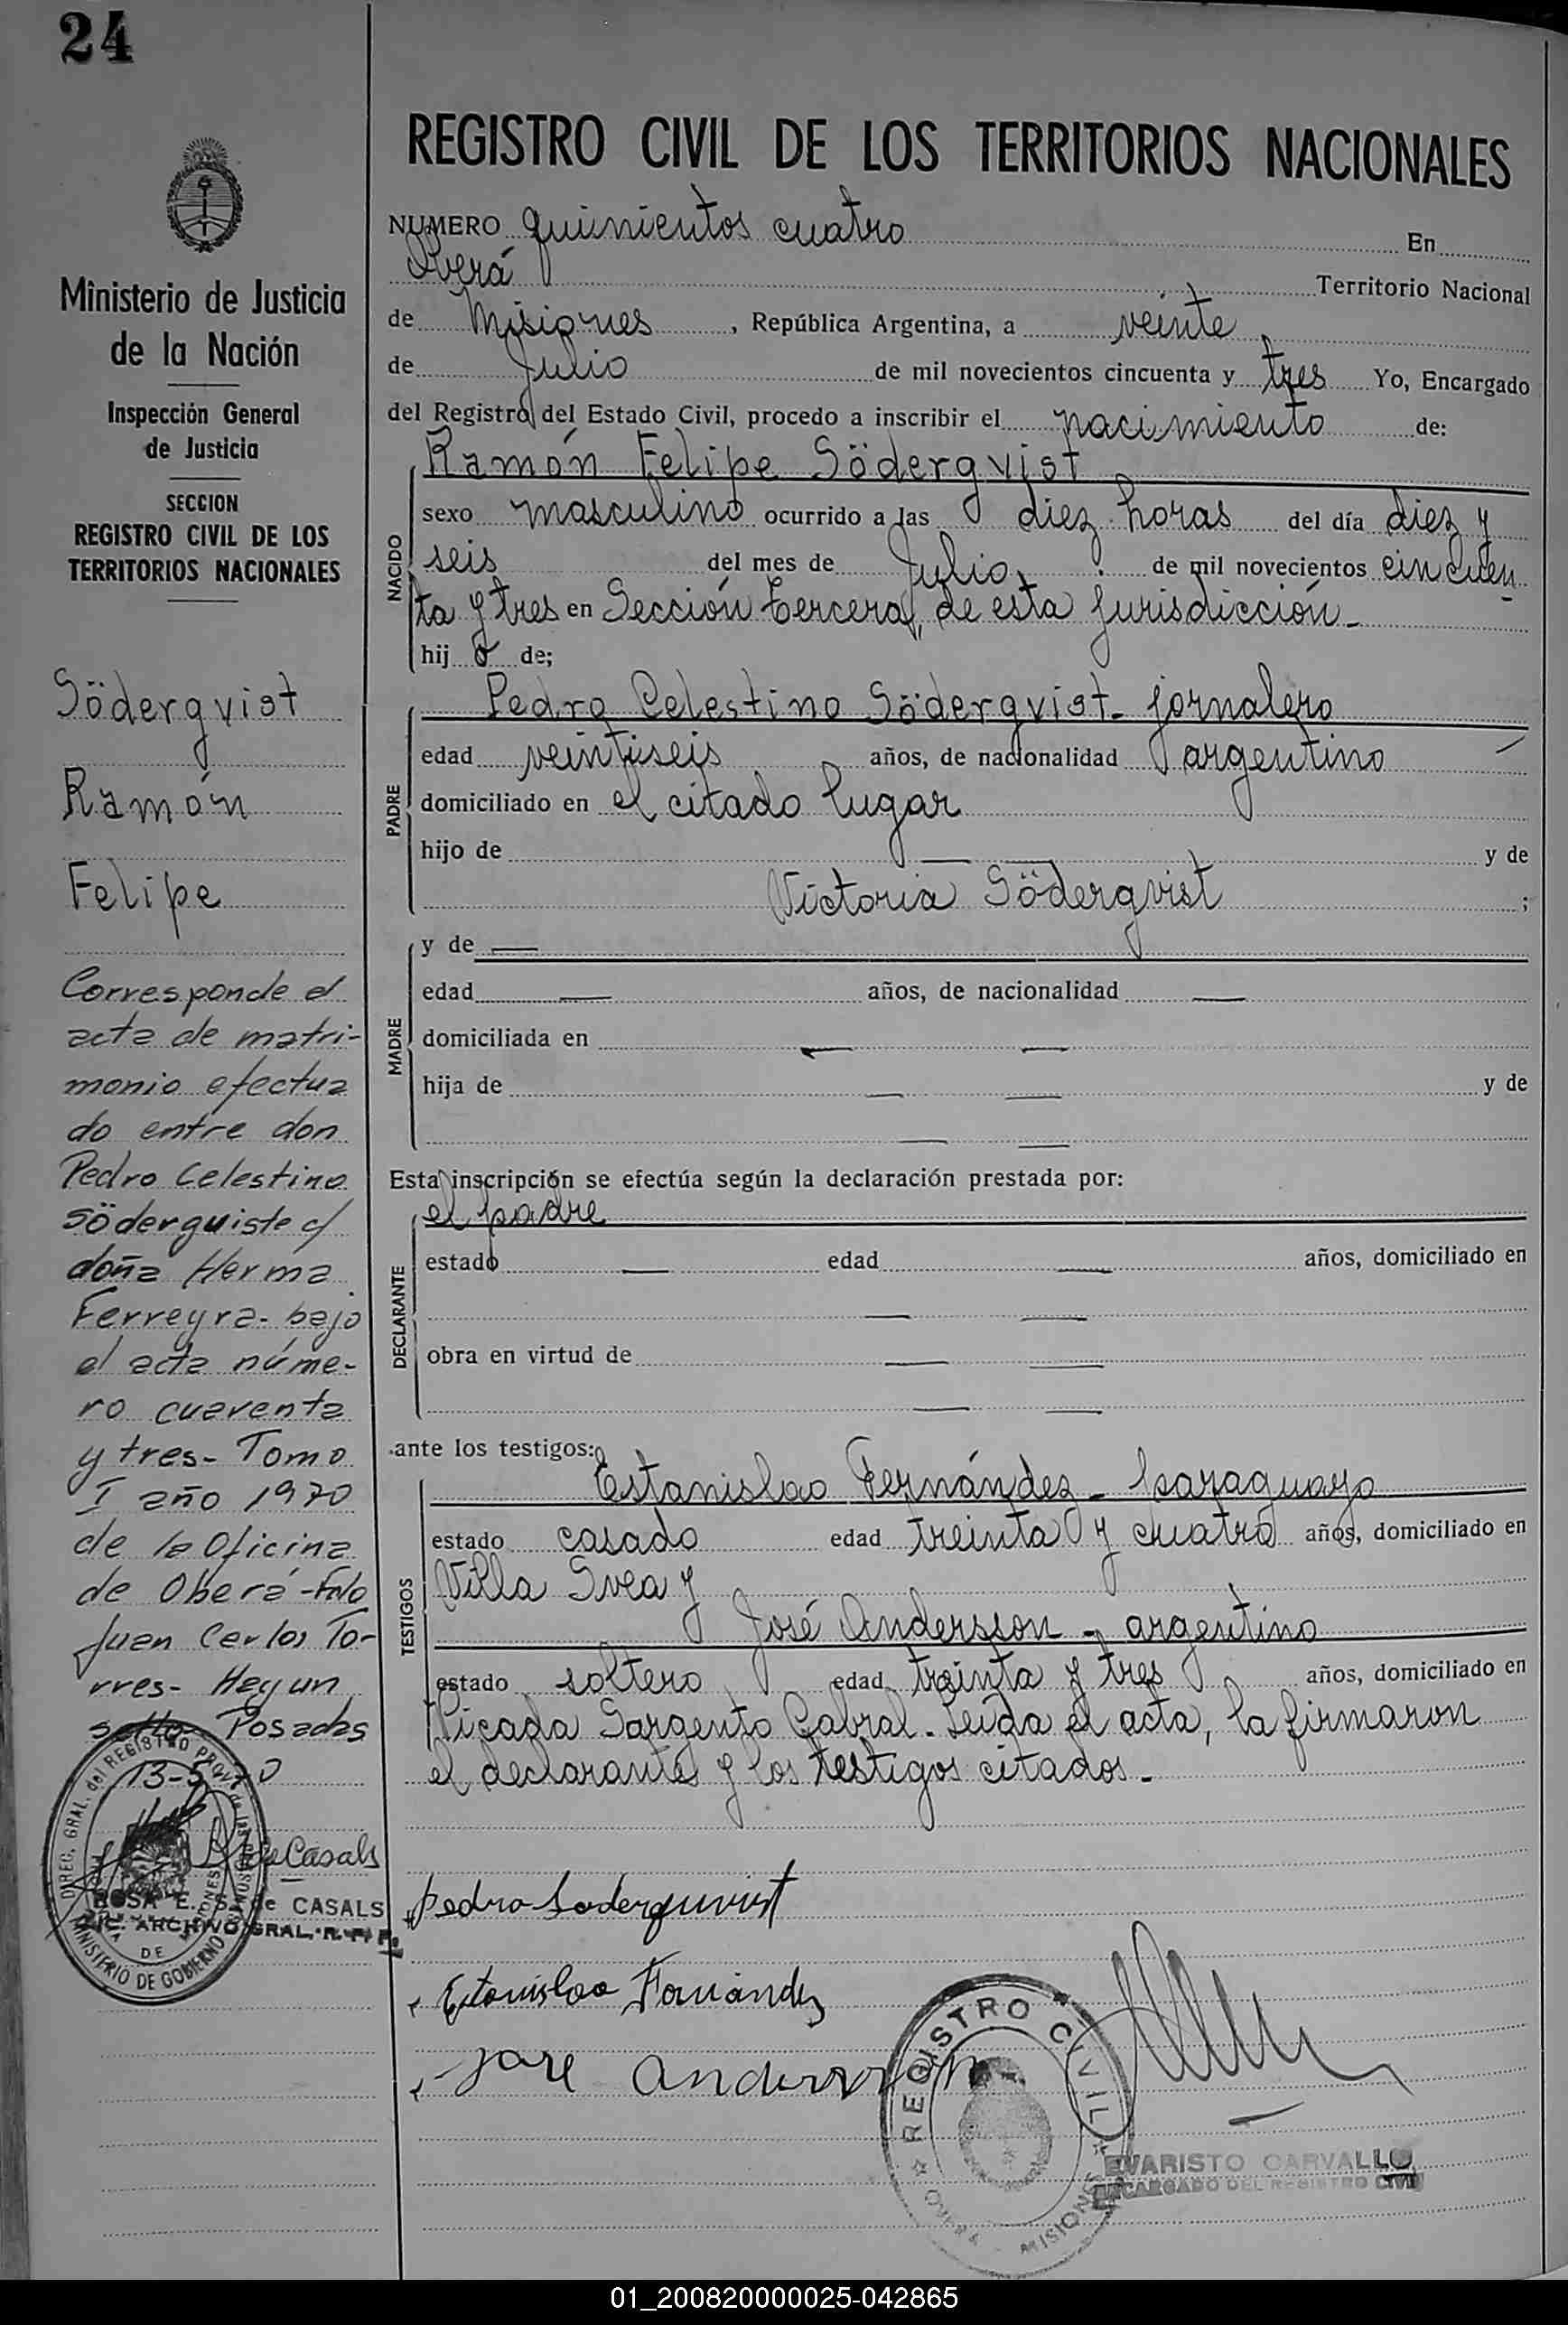 24
Ministerio de Justicia
de la Nación
Inspección General
de Justicia
SECCION
REGISTRO CIVIL DE LOS
TERRITORIOS NACIONALES
Söderqvist
Ramón
Felipe
Corresponde el
acta de matri-
monio efectua
do entre don
Pedro Celestino
Söderguiste c/
doña Herma
Ferreyra- bajo
el acta núme-
ro cuarenta
y tres- Tomo
I año 1970
de la Oficina
de Oberá-Fdo
Juan Carlos To-
rres- Hay un
sello Posadas
13-5-70
de Casals
ROSA E. S. de CASALS
ARCHIVO GRAL.
DIREC. GRAL. del REGISTRO PROV. de las PERSONAS
MINISTERIO DE GOBIERNO
MISIONES
DE
REGISTRO CIVIL DE LOS TERRITORIOS NACIONALES
NUMERO quinientos cuatro En
Oberá Territorio Nacional
de Misiones, República Argentina, a veinte
de Julio de mil novecientos cincuenta y tres Yo, Encargado
del Registro del Estado Civil, procedo a inscribir el nacimiento de:
NACIDO
Ramón Felipe Söderqvist
sexo masculino ocurrido a las diez horas del día diez y
seis del mes de Julio de mil novecientos cincuen
ta y tres en Sección tercera, de esta jurisdicción.-
hij o de;
PADRE
Pedro Celestino Söderqvist- jornalero
edad veintiseis años, de nacionalidad argentino
domiciliado en el citado lugar
hijo de — — y de
Victoria Söderqvist ;
MADRE
y de —
edad — años, de nacionalidad —
domiciliada en — —
hija de — — y de
— —
Esta inscripción se efectúa según la declaración prestada por:
DECLARANTE
el padre
estado — edad — años, domiciliado en
— —
obra en virtud de — —
— —
ante los testigos:
TESTIGOS
Estanislao Fernández- paraguayo
estado casado edad treinta y cuatro años, domiciliado en
Villa Svea y
José Andersson - argentino
estado soltero edad treinta y tres años, domiciliado en
Picada Sargento Cabral. Leída el acta, la firmaron
el declarante y los testigos citados.-
Pedro Soderquvist
Estanislao Fernández
José Andersson
REGISTRO CIVIL
OBERA - MISIONES
EVARISTO CARVALLO
ENCARGADO DEL REGISTRO CIVIL
01_200820000025-042865